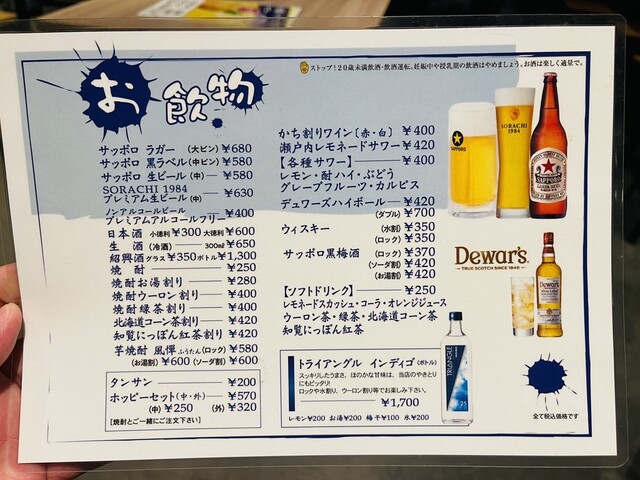 ストップ!20歳未満飲酒・飲酒運転。妊娠中や授乳期の飲酒はやめましょう。お酒は楽しく適量で。
お飲物
サッポロ ラガー (大ビン) ¥680
サッポロ 黒ラベル (中ビン) ¥580
サッポロ 生ビール (中) ¥580
SORACHI 1984
プレミアム生ビール (中) ¥630
ノンアルコールビール
プレミアムアルコールフリー ¥400
日本酒 小徳利 ¥300 大徳利 ¥600
生酒 (冷酒) 300ml ¥650
紹興酒 グラス ¥350 ボトル ¥1,300
焼酎 ¥250
焼酎お湯割り ¥280
焼酎ウーロン割り ¥400
焼酎緑茶割り ¥400
北海道コーン茶割り ¥420
知覧にっぽん紅茶割り ¥420
芋焼酎 風憚 ふうたん (ロック) ¥580
(お湯割) ¥600 (ソーダ割) ¥600
タンサン ¥200
ホッピーセット (中・外) ¥570
(中) ¥250 (外) ¥320
[焼酎とご一緒にご注文下さい]
かち割りワイン [赤・白] ¥400
瀬戸内レモネードサワー ¥420
【各種サワー】 ¥400
レモン・酎ハイ・ぶどう
グレープフルーツ・カルピス
デュワーズハイボール ¥420
(ダブル) ¥700
ウィスキー (水割) ¥350
(ロック) ¥350
サッポロ黒梅酒 (ロック) ¥370
(ソーダ割) ¥420
(お湯割) ¥420
【ソフトドリンク】 ¥250
レモネードスカッシュ・コーラ・オレンジジュース
ウーロン茶・緑茶・北海道コーン茶
知覧にっぽん紅茶
トライアングル インディゴ (ボトル)
スッキリしたうまさ、ほのかな甘味は、当店のやきとり
にもピッタリ!
ロックや水割り、ウーロン割等でお楽しみ下さい。
¥1,700
レモン¥200 お湯¥200 梅干¥100 氷¥200
TRIANGLE
25
SAPPORO
SORACHI
1984
SAPPORO
LAGER BEER
Dewar's
TRUE SCOTCH SINCE 1846
Dewar's
全て税込価格です